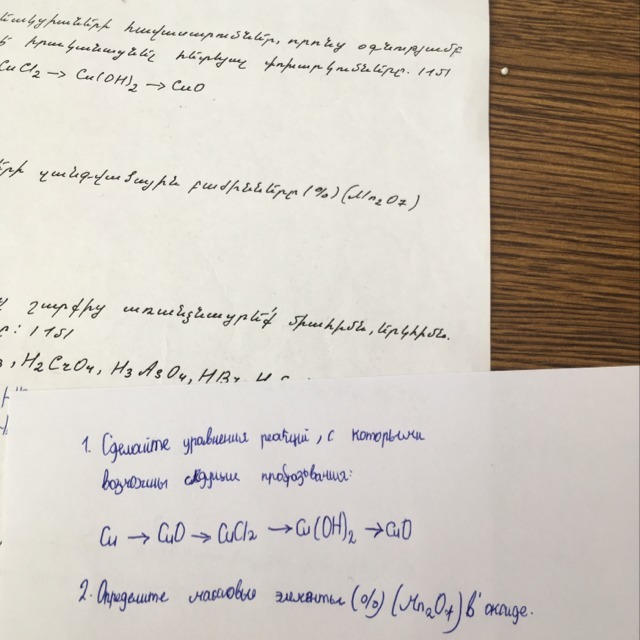 հավասարումները, որոնց օգնությամբ
իրականացնել հետևյալ փոխարկումները. 1 1մ1
CuCl₂ → Cu(OH)₂ → CuO
զանգվածային բաժինները (%) (Mn₂O₇)
շարքից առանձնացրե՛ք միահիմն, երկհիմն.
H₂CrO₄, H₃AsO₄, HBr
1. Сделайте уравнения реакций, с которыми
возможны следущие пробразования:
Cu → CuO → CuCl₂ → Cu(OH)₂ → CuO
2. Определите массовые элементы (%) (Mn₂O₇) в оксиде.